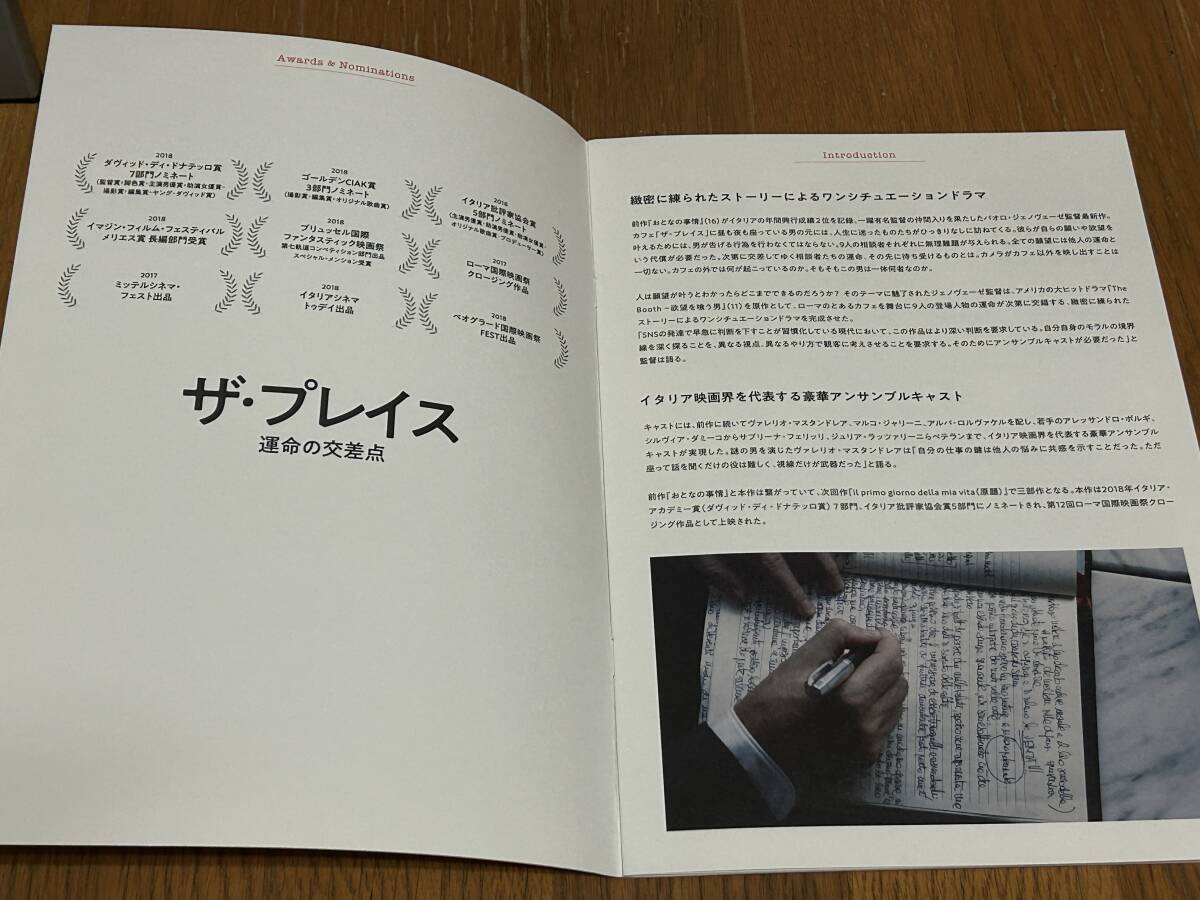 Awards & Nominations
2018
ダヴィッド・ディ・ドナテッロ賞
7部門ノミネート
(監督賞・脚色賞・主演男優賞・助演女優賞・
撮影賞・編集賞・ヤング・ダヴィッド賞)
2018
ゴールデンCIAK賞
3部門ノミネート
(撮影賞・編集賞・オリジナル歌曲賞)
2018
イタリア批評家協会賞
5部門ノミネート
(主演男優賞・助演男優賞・助演女優賞・
オリジナル歌曲賞・プロデューサー賞)
2018
イマジン・フィルム・フェスティバル
メリエス賞 長編部門受賞
2018
ブリュッセル国際
ファンタスティック映画祭
第七軌道コンペティション部門出品
スペシャル・メンション受賞
2017
ローマ国際映画祭
クロージング作品
2017
ミッテルシネマ・
フェスト出品
2018
イタリアシネマ
トゥデイ出品
2018
ベオグラード国際映画祭
FEST出品
ザ・プレイス
運命の交差点
Introduction
緻密に練られたストーリーによるワンシチュエーションドラマ
前作『おとなの事情』(16)がイタリアの年間興行成績2位を記録、一躍有名監督の仲間入りを果たしたパオロ・ジェノヴェーゼ監督最新作。
カフェ『ザ・プレイス』に昼も夜も座っている男の元には、人生に迷ったものたちがひっきりなしに訪ねてくる。彼らが自らの願いや欲望を
叶えるためには、男が告げる行為を行わなくてはならない。9人の相談者それぞれに無理難題が与えられる。全ての願望には他人の運命と
いう代償が必要だった。次第に交差してゆく相談者たちの運命、その先に待ち受けるものとは。カメラがカフェ以外を映し出すことは
一切ない。カフェの外では何が起こっているのか。そもそもこの男は一体何者なのか。
人は願望が叶うとわかったらどこまでできるのだろうか? そのテーマに魅了されたジェノヴェーゼ監督は、アメリカの大ヒットドラマ『The
Booth ~欲望を喰う男』(11)を原作として、ローマのとあるカフェを舞台に9人の登場人物の運命が次第に交錯する、緻密に練られた
ストーリーによるワンシチュエーションドラマを完成させた。
「SNSの発達で早急に判断を下すことが習慣化している現代において、この作品はより深い判断を要求している。自分自身のモラルの境界
線を深く探ることを、異なる視点、異なるやり方で観客に考えさせることを要求する。そのためにアンサンブルキャストが必要だった」と
監督は語る。
イタリア映画界を代表する豪華アンサンブルキャスト
キャストには、前作に続いてヴァレリオ・マスタンドレア、マルコ・ジャリーニ、アルバ・ロルヴァケルを配し、若手のアレッサンドロ・ボルギ、
シルヴィア・ダミーコからサブリーナ・フェリッリ、ジュリア・ラッツァリーニらベテランまで、イタリア映画界を代表する豪華アンサンブル
キャストが実現した。謎の男を演じたヴァレリオ・マスタンドレアは「自分の仕事の鍵は他人の悩みに共感を示すことだった。ただ
座って話を聞くだけの役は難しく、視線だけが武器だった」と語る。
前作『おとなの事情』と本作は繋がっていて、次回作『il primo giorno della mia vita(原題)』で三部作となる。本作は2018年イタリア・
アカデミー賞(ダヴィッド・ディ・ドナテッロ賞)7部門、イタリア批評家協会賞5部門にノミネートされ、第12回ローマ国際映画祭クロー
ジング作品として上映された。